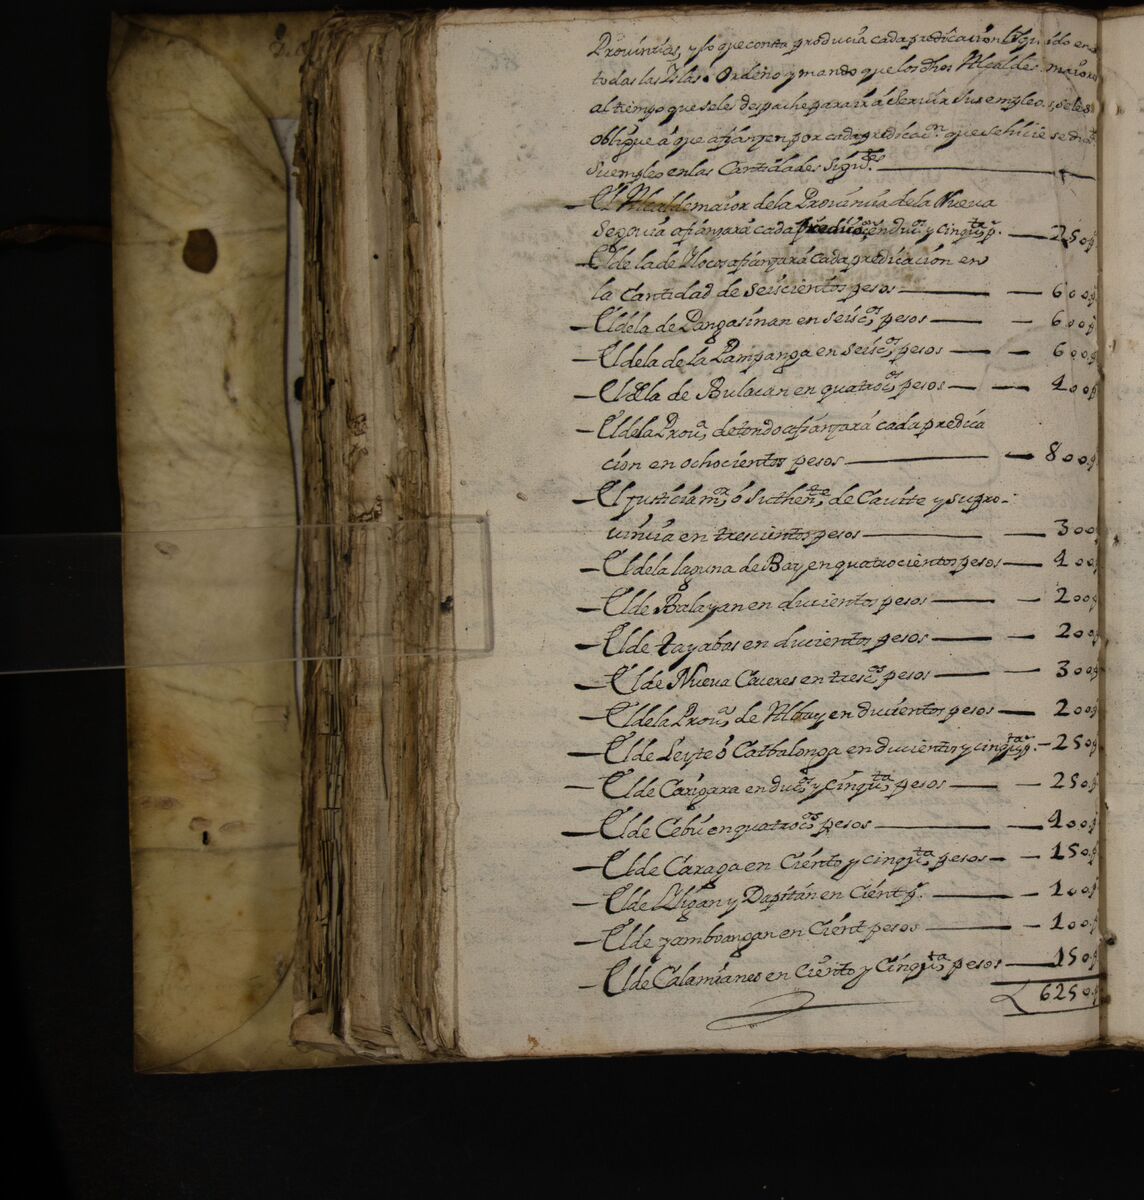 Provinsias, y lo que consta producia cada predicacion liquido en
todas las Yslas: Ordeno y mando que los dhos Alcaldes maiores
al tiempo que se les despache para ir á servir sus empleos, se les
obligue á que afiansen por cada predicac.on que se hiciese dur.te
su empleo en las Cantidades Sigui.tes
El Alcalde maior de la Provincia de la Nueva
Segovia afianzará cada predicac.on en duc.os y cinqu.ta p.s 250p
El de la de Ylocos afianzará cada predicacion en
la cantidad de seiscientos pesos 600p
El de la de Pangasinan en seisc.os pesos 600p
El de la de la Pampanga en seisc.os pesos 600p
El de la de Bulacan en quatroc.os pesos 400p
El de la Prov.a de tondo afianzará cada predica
cion en ochocientos pesos 800p
El justicia m.or ó su then.te de Cavite y su pro-
vincia en trescientos pesos 300p
El de la laguna de Bay en quatrocientos pesos 400p
El de Balayan en ducientos pesos 200p
El de tayabas en ducientos pesos 200p
El de Nueva Caceres en tresc.os pesos 300p
El de la Prov.a de Albay en ducientos pesos 200p
El de Leyte ó Catbalonga en ducientos y cinqu.ta p.s 250p
El de Carigara en duc.os y cinqu.ta pesos 250p
El de Cebú en quatroc.os pesos 400p
El de Caraga en Ciento y cinqu.ta pesos 150p
El de Yligan y Dapitan en Cient p.s 100p
El de zamboangan en Cient pesos 100p
El de Calamianes en Ciento y Cinqu.ta pesos 150p
6250p